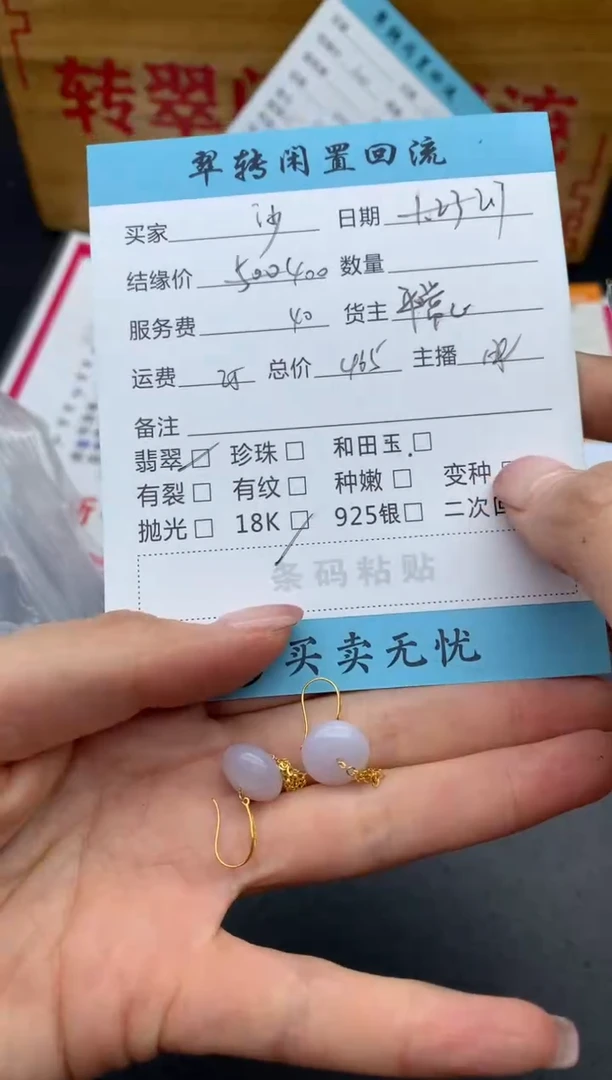 转翠闲
流
翠转闲置回流
买家 沙 日期
结缘价 500400 数量
服务费 40 货主 平常心
运费 25 总价 465 主播
备注
翡翠☑ 珍珠□ 和田玉□
有裂□ 有纹□ 种嫩□ 变种
抛光□ 18K☑ 925银□ 二次回
条码粘贴
买卖无忧